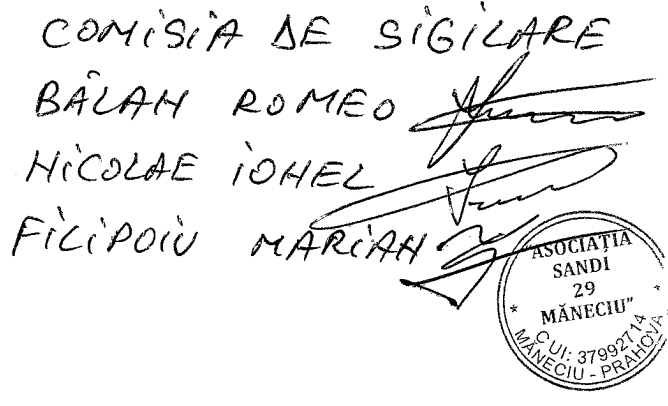 COMISIA DE SIGILARE
BĂLAN ROMEO
NICOLAE IONEL
FILIPOIU MARIAN
ASOCIAȚIA
SANDI
29
MĂNECIU"
CUI: 37992714
MĂNECIU - PRAHOVA